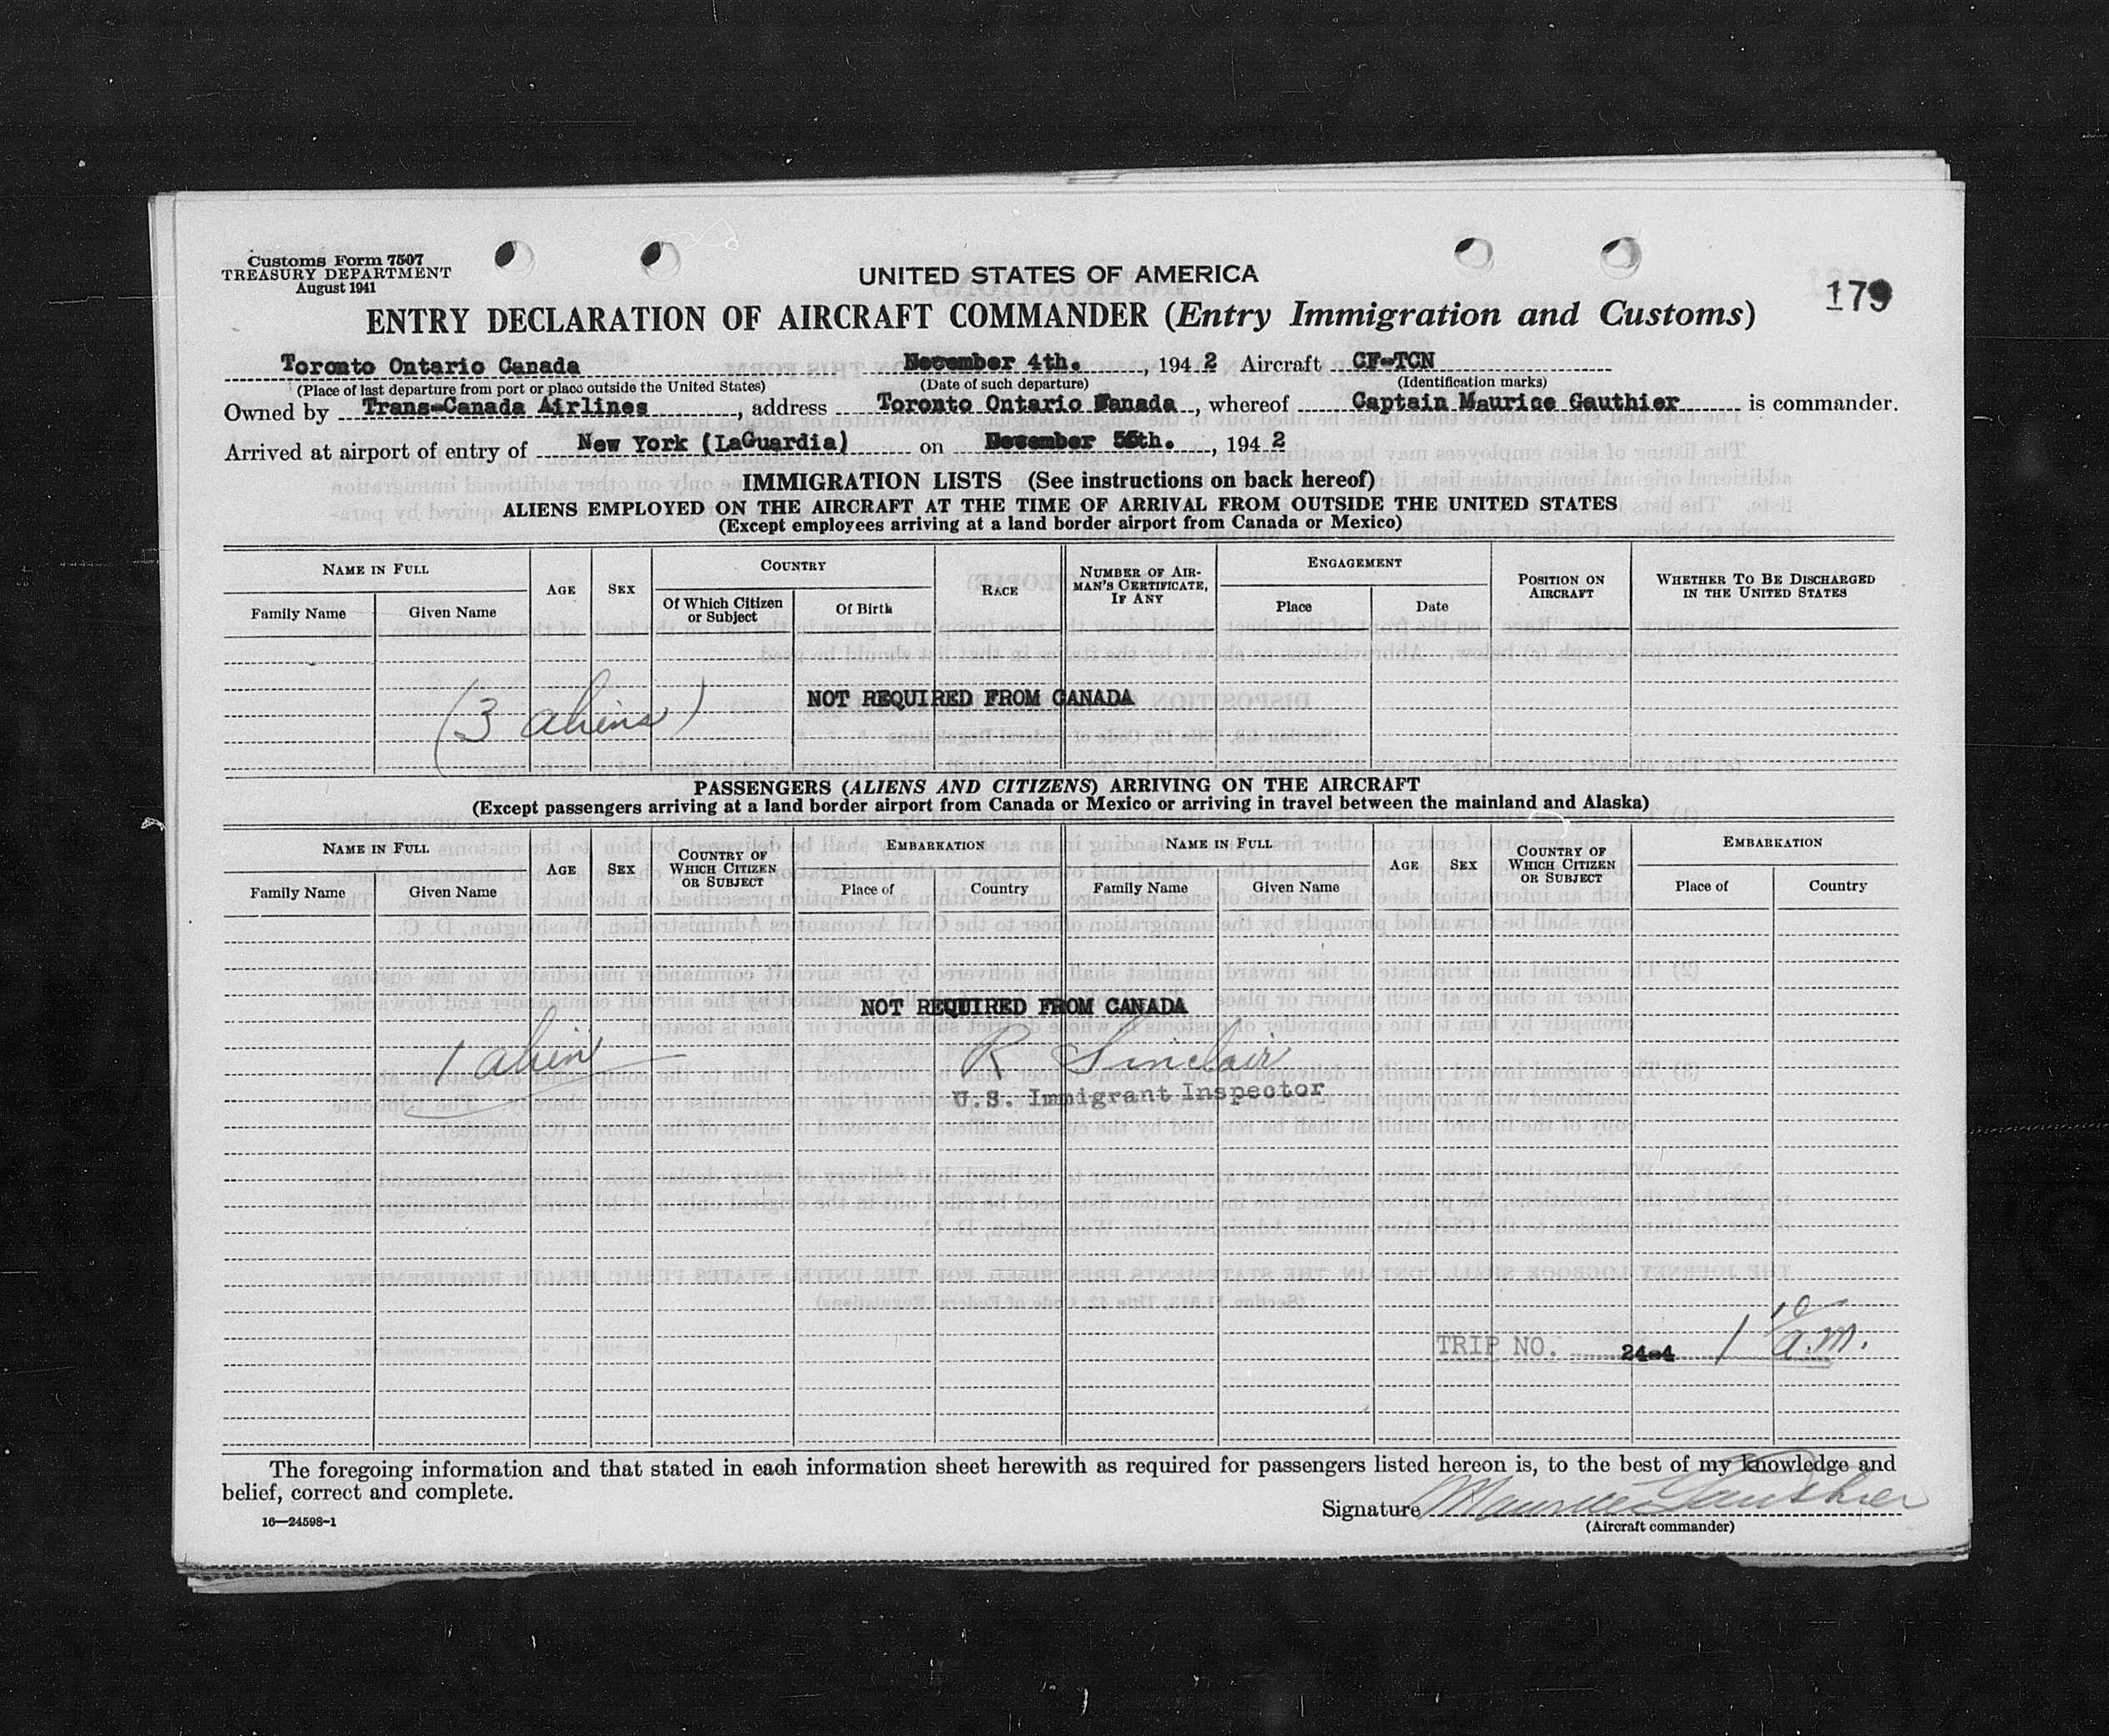 Customs Form 7507
TREASURY DEPARTMENT
August 1941
UNITED STATES OF AMERICA
179
ENTRY DECLARATION OF AIRCRAFT COMMANDER (Entry Immigration and Customs)
Toronto Ontario Canada December 4th., 1942 Aircraft CF-TCN
(Place of last departure from port or place outside the United States) (Date of such departure) (Identification marks)
Owned by Trans-Canada Airlines, address Toronto Ontario Canada, whereof Captain Maurice Gauthier is commander.
Arrived at airport of entry of New York (LaGuardia) on December 5th., 1942
IMMIGRATION LISTS (See instructions on back hereof)
ALIENS EMPLOYED ON THE AIRCRAFT AT THE TIME OF ARRIVAL FROM OUTSIDE THE UNITED STATES
(Except employees arriving at a land border airport from Canada or Mexico)
NAME IN FULL AGE SEX COUNTRY RACE NUMBER OF AIRMAN'S CERTIFICATE, IF ANY ENGAGEMENT POSITION ON AIRCRAFT WHETHER TO BE DISCHARGED IN THE UNITED STATES
Family Name Given Name Of Which Citizen or Subject Of Birth Place Date
NOT REQUIRED FROM CANADA
(3 aliens)
PASSENGERS (ALIENS AND CITIZENS) ARRIVING ON THE AIRCRAFT
(Except passengers arriving at a land border airport from Canada or Mexico or arriving in travel between the mainland and Alaska)
NAME IN FULL AGE SEX COUNTRY OF WHICH CITIZEN OR SUBJECT EMBARKATION NAME IN FULL AGE SEX COUNTRY OF WHICH CITIZEN OR SUBJECT EMBARKATION
Family Name Given Name Place of Country Family Name Given Name Place of Country
NOT REQUIRED FROM CANADA
1 alien R Sinclair
U.S. Immigrant Inspector
TRIP NO. 24-4 1 10 a.m.
The foregoing information and that stated in each information sheet herewith as required for passengers listed hereon is, to the best of my knowledge and
belief, correct and complete.
Signature Maurice Gauthier
(Aircraft commander)
16—24598-1